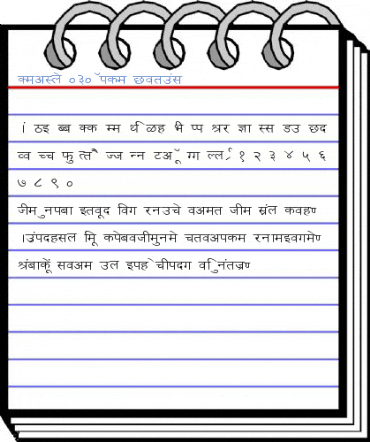 क्मअस्ले ०३०ॅ पकम छवतउंस
। ठइ ब्ब क्क म्म र्थ ळह भै प्प श्रर ज्ञा स्स डउ छद
व्व च्च फु त्तै ज्ज न्न टअॅ ग्ग ल्ल १ २ ३ ४ ५ ६
७ ८ ९ ०
जीम ुनपबा इतवूद विग रनउचे वअमत जीम स्रंल कवहण
।उंपदहसल मूि कपेबवजीमुनमे चतवअपकम रनामइवगमेण
श्रंबाकूें सवअम उल इपहे चीपदग वुिनंतज्रण